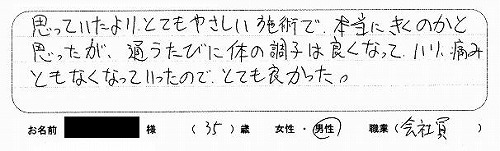 思っていたより、とてもやさしい施術で、本当にきくのかと
思ったが、通うたびに体の調子は良くなっていり、痛み
ともなくなっていったので、とても良かった。
お名前 様 (35)歳 女性・男性 職業(会社員)